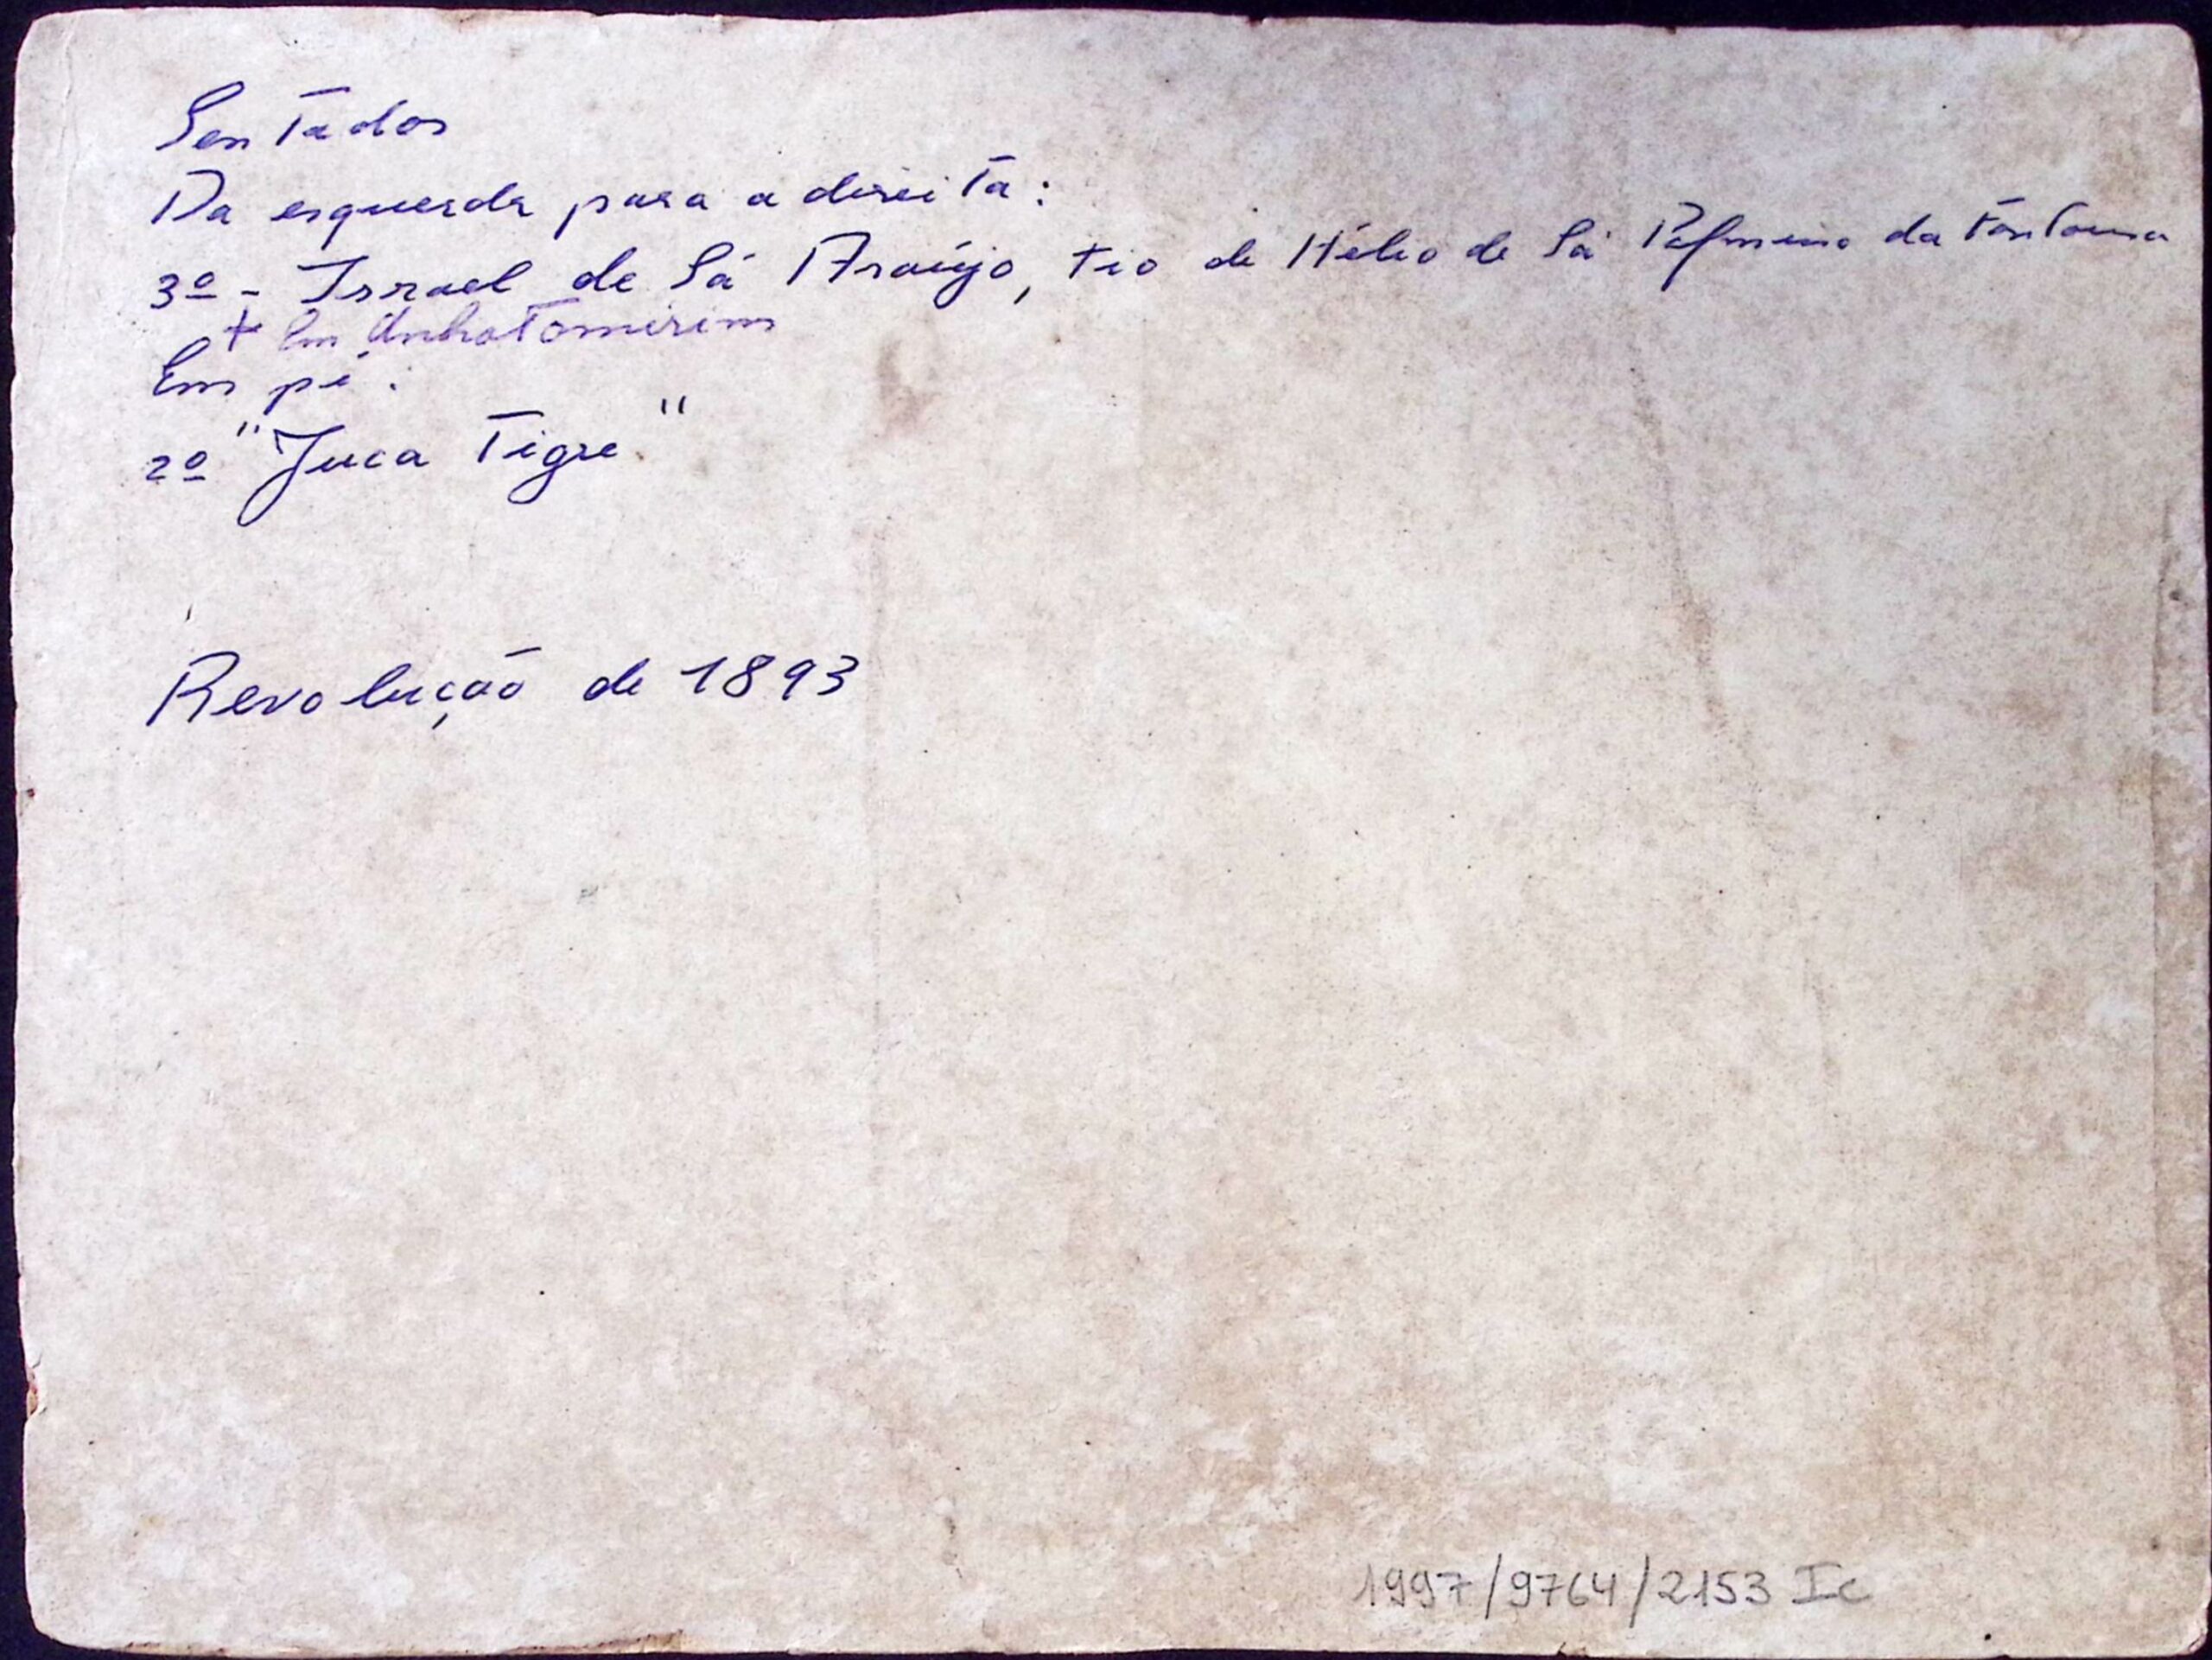 Sentados
Da esquerda para a direita:
3º - Israel de Sá Araújo, tio de Hélio de Sá da Fontoura
+ em Anhatomirim
Em pé:
2º "Juca Tigre."
Revolução de 1893
1997/9764/2153 Ic